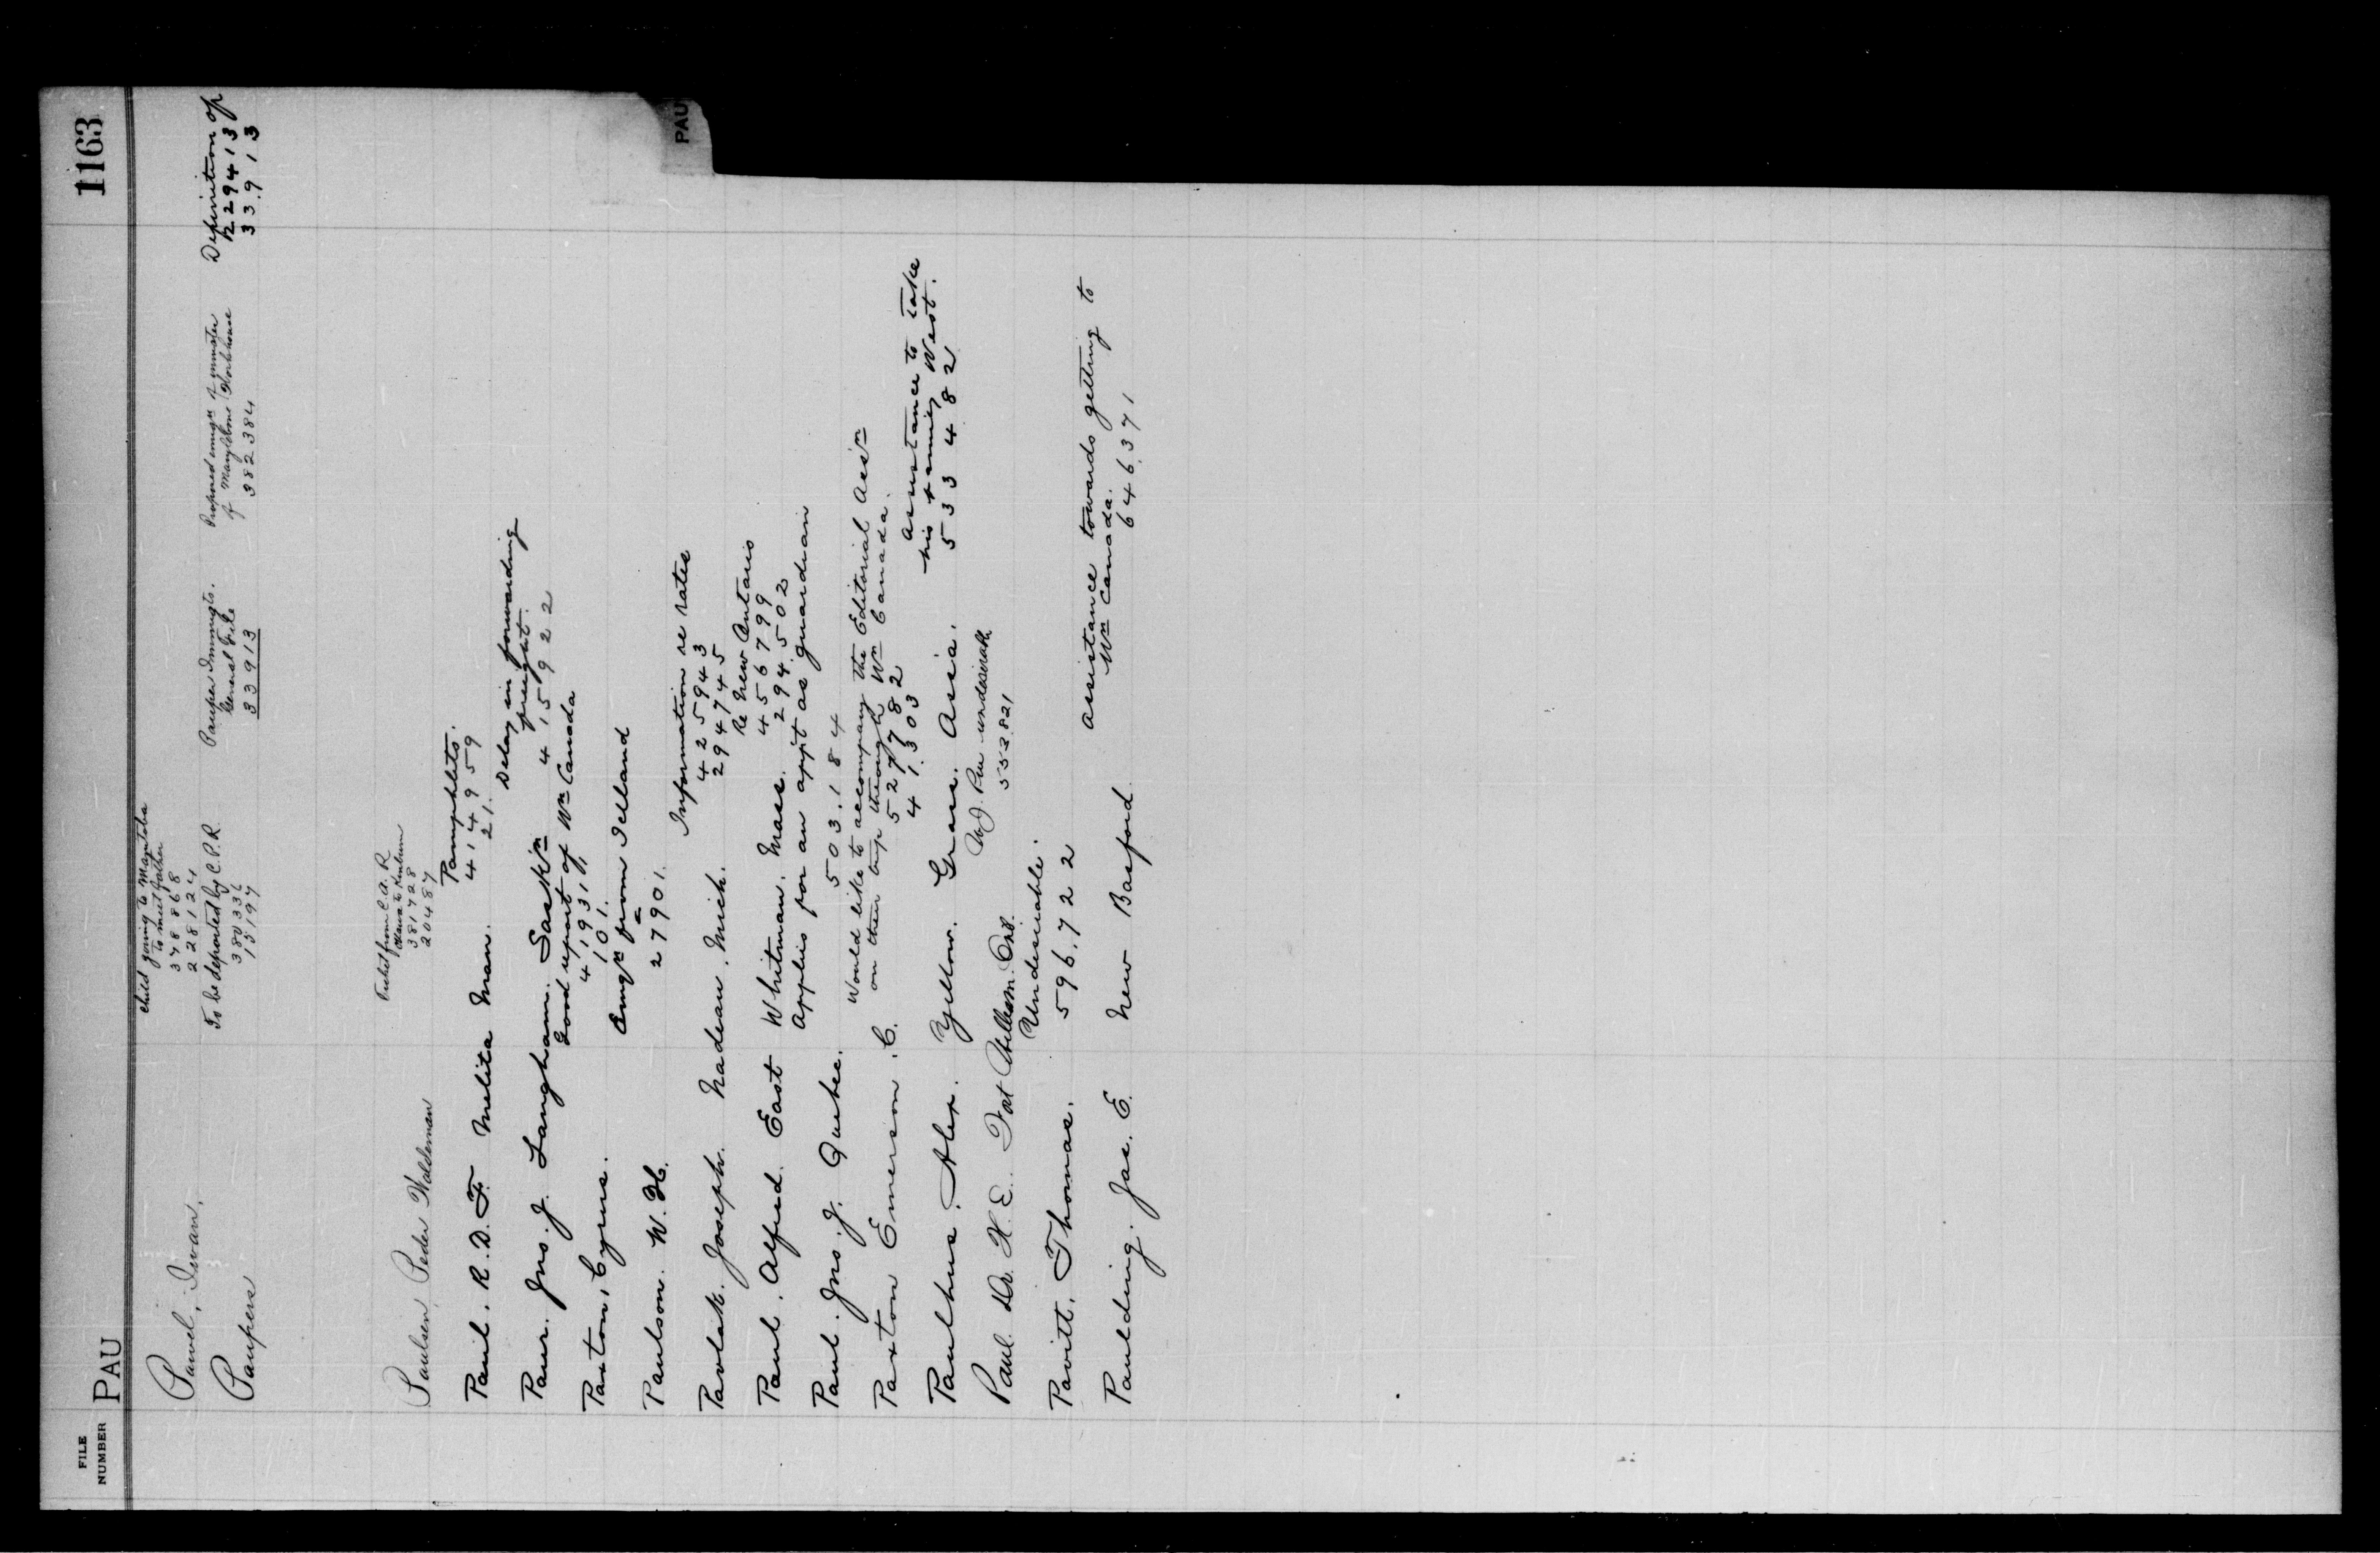 FILE NUMBER
PAU
1163
PAU
Pawel, Iwan.
child going to Manitoba
to meet father
378868
228124
Paupers
To be deported by C.P.R.
380336
15197
Pauper Immigts.
General File
33913
Proposed emign of inmates
of Marylebone Workhouse
382384
Definition of
229413
33913
Paulsen, Peder Waldeman
Ticket from C.A.R.
Ottawa to Kinburn
381728
20487
Paul. R. D. F. Melita Man.
Pamphlets.
414959
21.
Paur. Jno. J. Langham. Saskn
Delay in forwarding
freight.
415922
Paxton, Cyrus.
Good report of Wn Canada
41931
101.
Paulson. W. H.
Emign from Iceland
27901.
Pavlak. Joseph. Nadeau. Mich.
Information re rates
425943
294745
Paul. Alfred. East Whitman. Mass.
Re New Ontario
456799
294502
Paul. Jno. J. Quebec.
Applies for an appt as guardian
503.184
Paxton Emerson. C.
Would like to accompany the Editorial Assn
on their trip through Wn Canada.
527782
41303
Paulhus. Alex. Yellow. Grass. Assa.
Assistance to take
his family West.
533482
Paul Dr. H. E. Fort William. Ont.
W.J. Pau undesirable
552821
Pavitt. Thomas.
Undesirable.
596.722
Paulding. Jas. E. New Basford.
Assistance towards getting to
Wn Canada.
646371